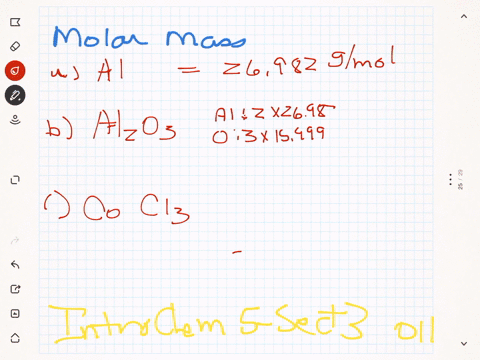 Molar Mass
a) Al = 26.982 g/mol
b) Al2O3 Al: 2 x 26.98
O: 3 x 15.999
c) Co Cl3
=
Intro Chem 5-Sect 3 011
25 / 29